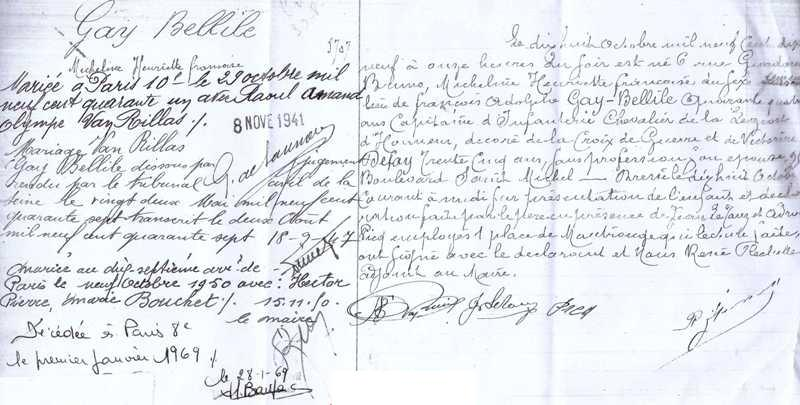 Gay Bellile
Micheline Henriette françoise
Marigé à Paris 10e le 29 octobre mil
neuf cent quarante un avec Raoul Amand
Olympe Van Rillas ./.
8 NOVE 1941
Mariage Van Rillas
Gay Bellile dissous par jugement
rendu par le tribunal civil de la
seine le vingt deux Mai mil neuf cent
quarante sept transcrit le deux Aout
mil neuf cent quarante sept 18-9-47
Mariée au dix septième arrt de
Paris le neuf octobre 1950 avec Hector
Pierre, Marie Bouchet ./. 15.11.50
le maire
Décédée à Paris 8e
le premier Janvier 1969 ./.
le 28-1-69
Le dix huit Octobre mil neuf Cent dix
neuf à onze heures du soir est né 6 rue
Bruno, Micheline Henriette Françoise du sexe
de françois Adolphe Gay-Bellile Quarante quatre
ans Capitaine d'Infanterie Chevalier de la Légion
d'Honneur, décoré de la Croix de Guerre et de Victorine
Defay trente cinq ans, sans profession, son épouse, 9
Boulevard Saint Michel — Dressé le dix huit Octobre
courant à midi sur présentation de l'enfant et décla
ration faite par le père en présence de
employés 1 place de Montrouge qui lecture faite,
ont signé avec le déclarant et Nous
Adjoint au Maire.